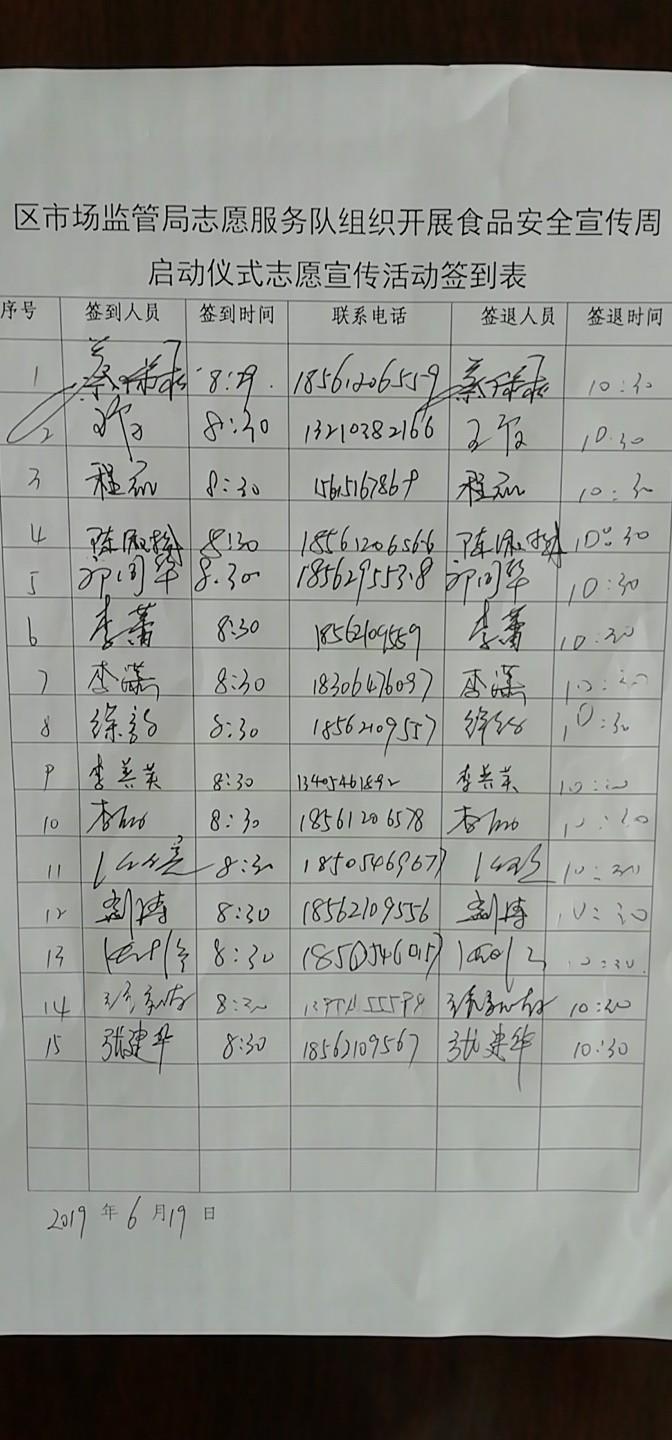 区市场监管局志愿服务队组织开展食品安全宣传周
启动仪式志愿宣传活动签到表
序号 签到人员 签到时间 联系电话 签退人员 签退时间
1 8:29 18561206559 10:30
2 8:30 13210382166 10:30
3 程 8:30 15615167869 程 10:30
4 陈淑梅 8:30 18561206566 陈淑梅 10:30
5 8:30 10:30
6 李蕾 8:30 18562109559 李蕾 10:30
7 李潇 8:30 18306476097 李潇 10:30
8 徐 8:30 18562109557 徐 10:30
9 李美英 8:30 13405461892 李美英 10:30
10 李 8:30 18561206578 李 10:30
11 8:30 18505469677 10:30
12 刘涛 8:30 18562109556 刘涛 10:30
13 8:30 10:30
14 8:30 10:30
15 张建华 8:30 18562109567 张建华 10:30
2019 年 6 月 19 日